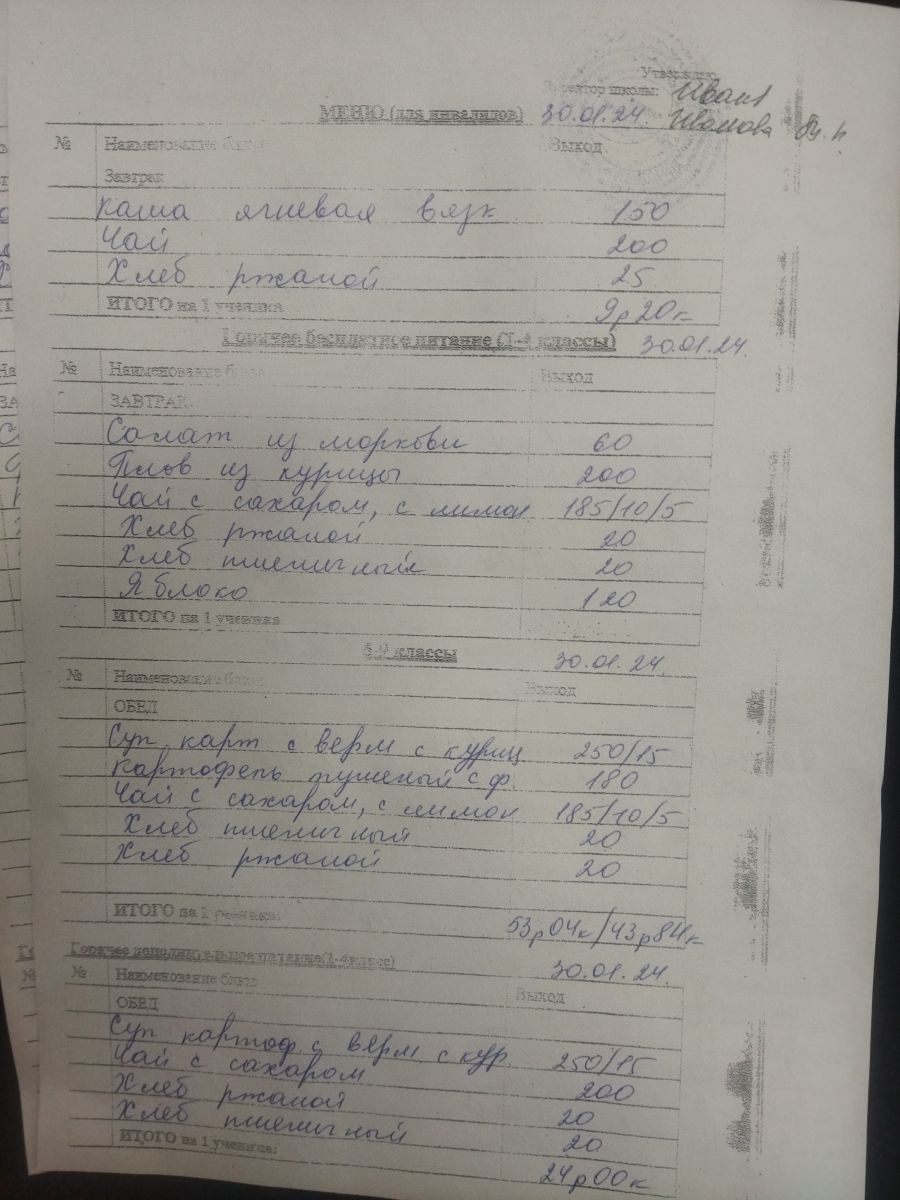 Утверждаю
Директор школы:
МЕНЮ (для инвалидов) 30.01.24 Иванова
№ Наименование блюд Выход
Завтрак
Каша ячневая вязк 150
Чай 200
Хлеб ржаной 25
ИТОГО на 1 ученика 9р20к
Горячее бесплатное питание (1-4 классы) 30.01.24.
№ Наименование блюд Выход
ЗАВТРАК
Салат из моркови 60
Плов из курицы 200
Чай с сахаром, с лимон 185/10/5
Хлеб ржаной 20
Хлеб пшеничный 20
Яблоко 120
ИТОГО на 1 ученика
5-9 классы 30.01.24.
№ Наименование блюд Выход
ОБЕД
Суп карт с верм с куриц 250/15
Картофель тушеный с ф. 180
Чай с сахаром, с лимон 185/10/5
Хлеб пшеничный 20
Хлеб ржаной 20
ИТОГО на 1 ученика: 53р04к/43р84к
Горячее дополнительное питание(1-4класс) 30.01.24.
№ Наименование блюд Выход
ОБЕД
Суп картоф с верм с кур 250/15
Чай с сахаром 200
Хлеб ржаной 20
Хлеб пшеничный 20
ИТОГО на 1 ученика: 24р00к